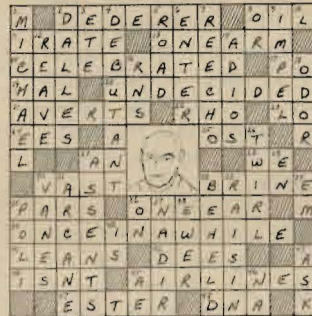 M DEDERER OIL
IRATE ONEARM
CELEBRATED PO
HAL UNDECIDED
AVERTS RHO LO
EES A OST R
L AN WE
VAST BRINE
PARS ONEEAR M
ONCEINAWHILE
LEANS DEES A
ISNT AIRLINES
ESTER DNA K